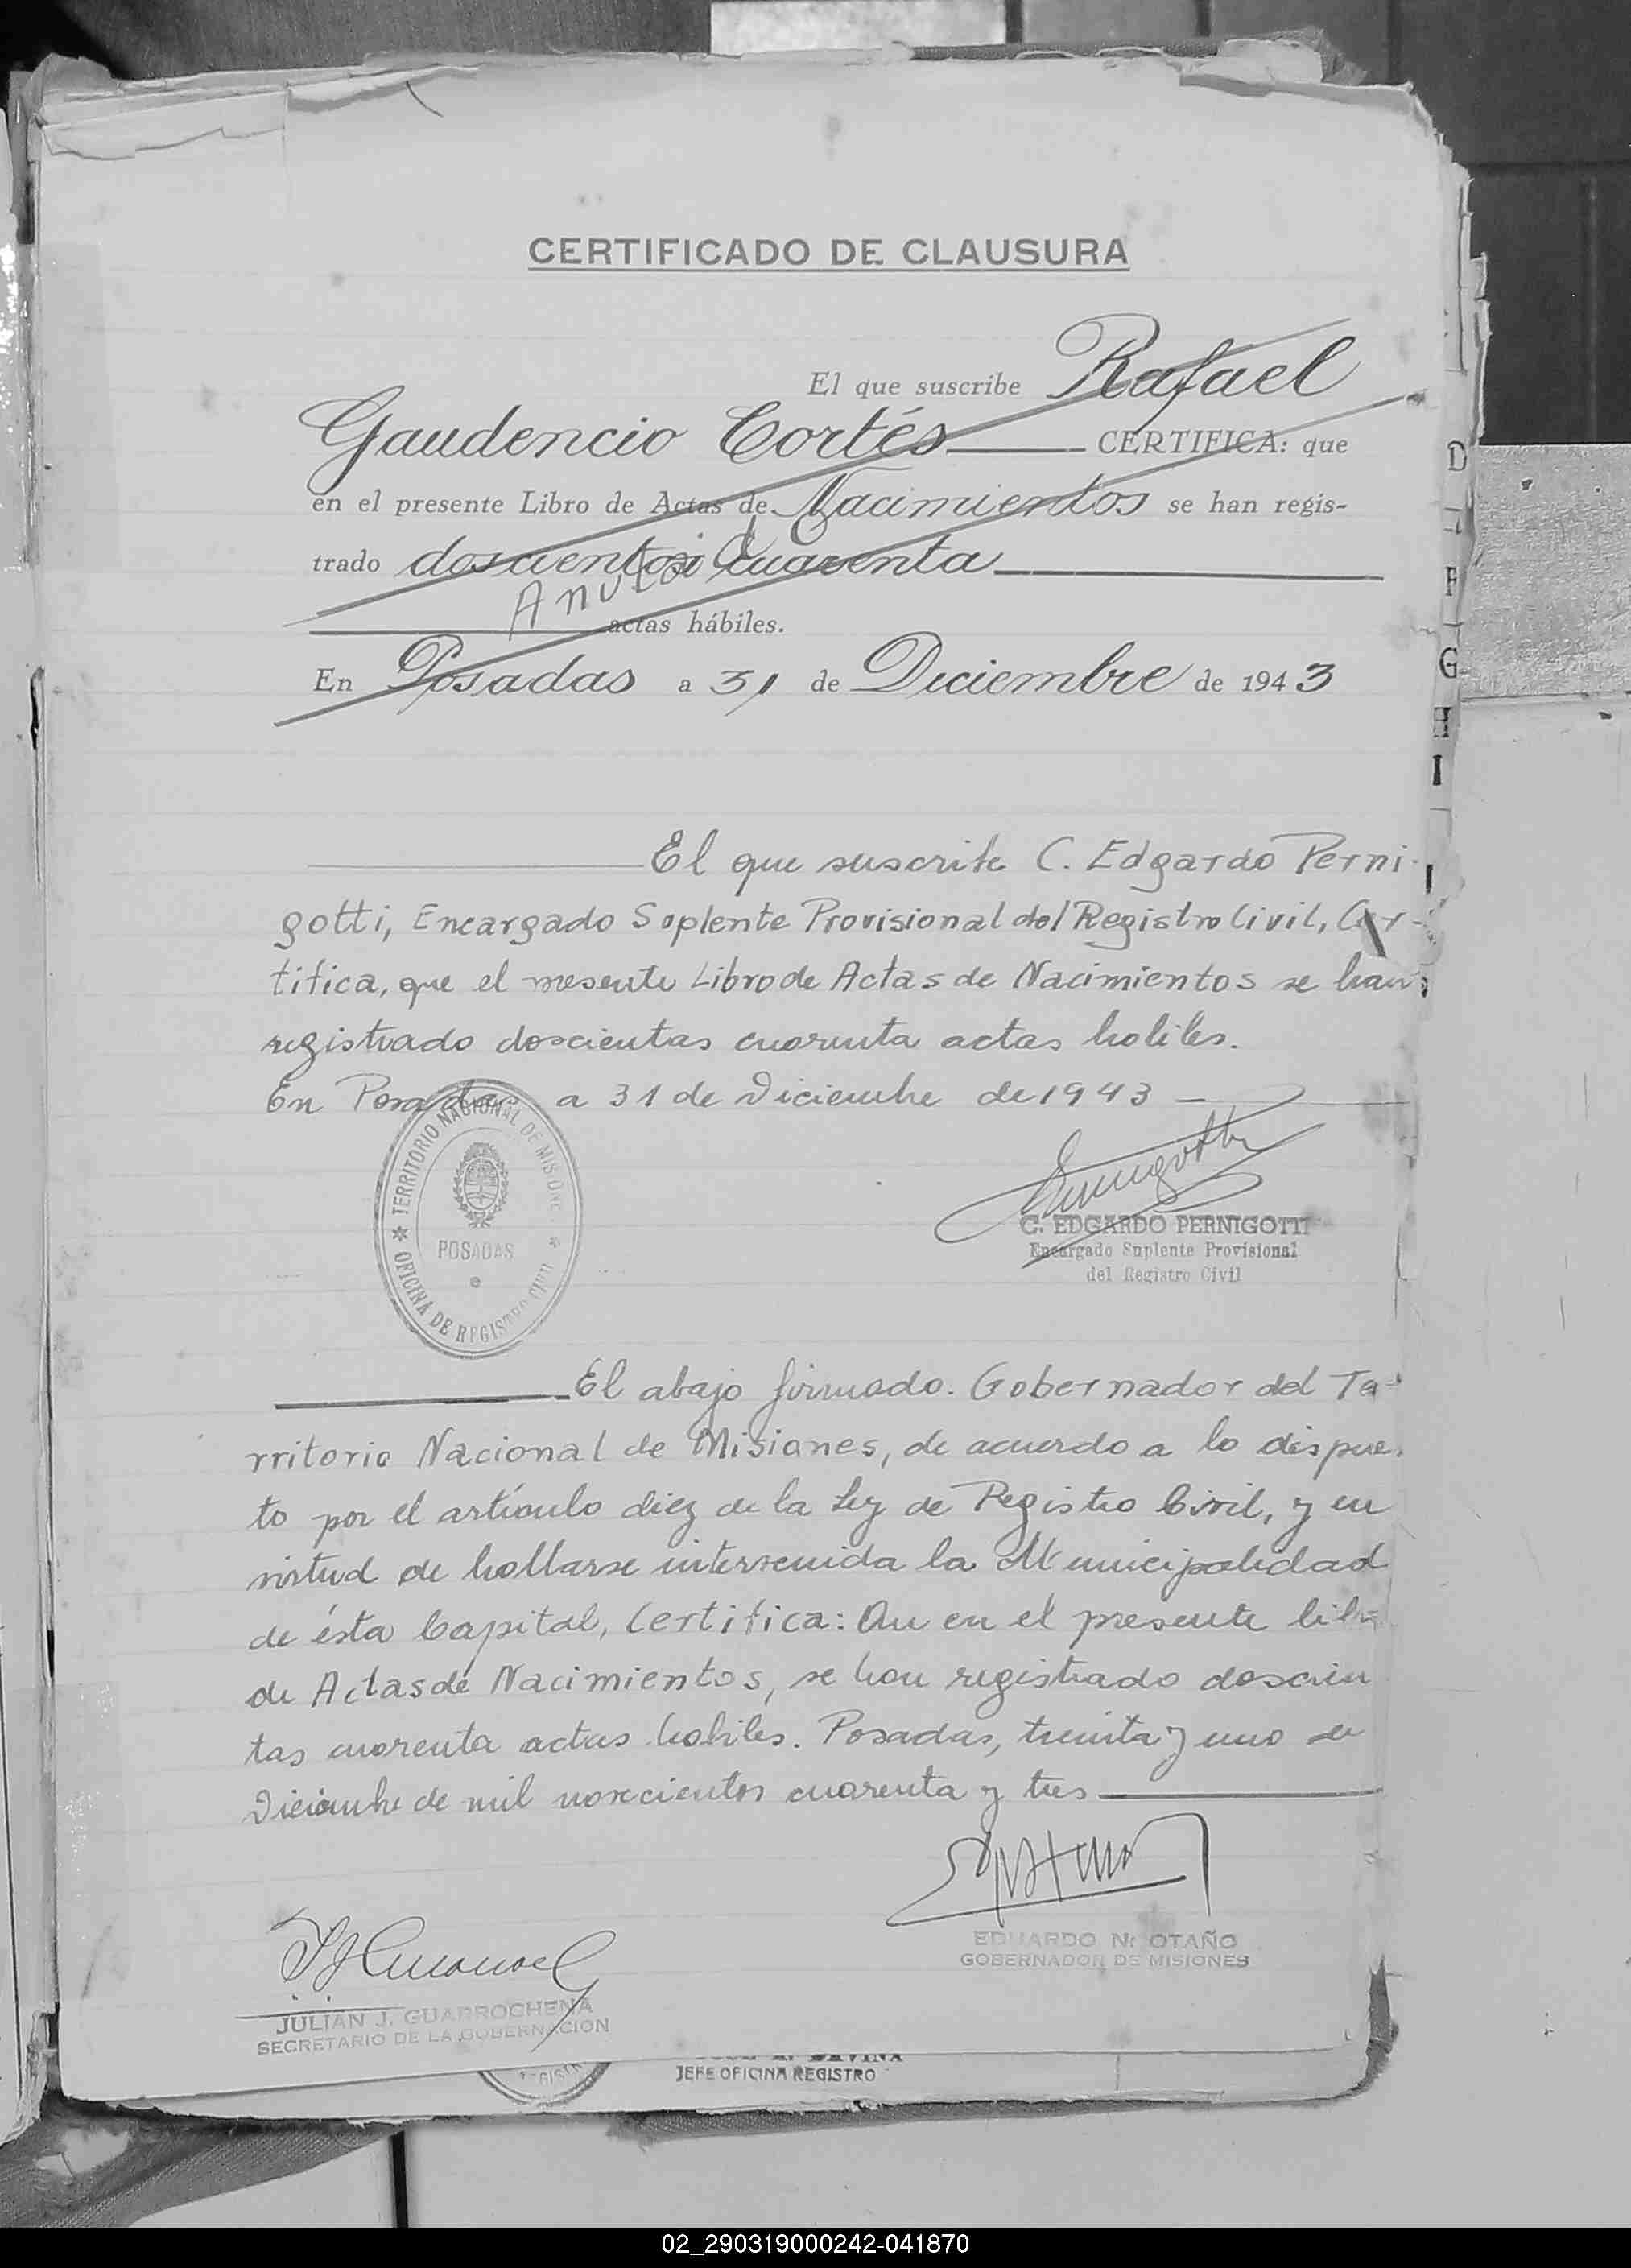 CERTIFICADO DE CLAUSURA
El que suscribe Rafael
Gaudencio Cortés CERTIFICA: que
en el presente Libro de Actas de Nacimientos se han regis-
trado doscientos cuarenta
Anulado
actas hábiles.
En Posadas a 31 de Diciembre de 1943
El que suscribe C. Edgardo Perni-
gotti, Encargado Suplente Provisional del Registro Civil, Cer-
tifica, que el presente Libro de Actas de Nacimientos se han
registrado doscientas cuarenta actas habiles.
En Posadas a 31 de Diciembre de 1943 —
TERRITORIO NACIONAL DE MISIONES
POSADAS
OFICINA DE REGISTRO CIVIL
C. EDGARDO PERNIGOTTI
Encargado Suplente Provisional
del Registro Civil
El abajo firmado. Gobernador del Te-
rritorio Nacional de Misiones, de acuerdo a lo dispues
to por el artículo diez de la Ley de Registro Civil, y en
virtud de hallarse intervenida la Municipalidad
de ésta Capital, Certifica: Que en el presente libro
de Actas de Nacimientos, se han registrado doscien
tas cuarenta actas habiles. Posadas, treinta y uno de
Diciembre de mil novecientos cuarenta y tres
EDUARDO N. OTAÑO
GOBERNADOR DE MISIONES
JULIAN J. GUARROCHENA
SECRETARIO DE LA GOBERNACION
JEFE OFICINA REGISTRO
D
F
G
H
I
02_290319000242-041870